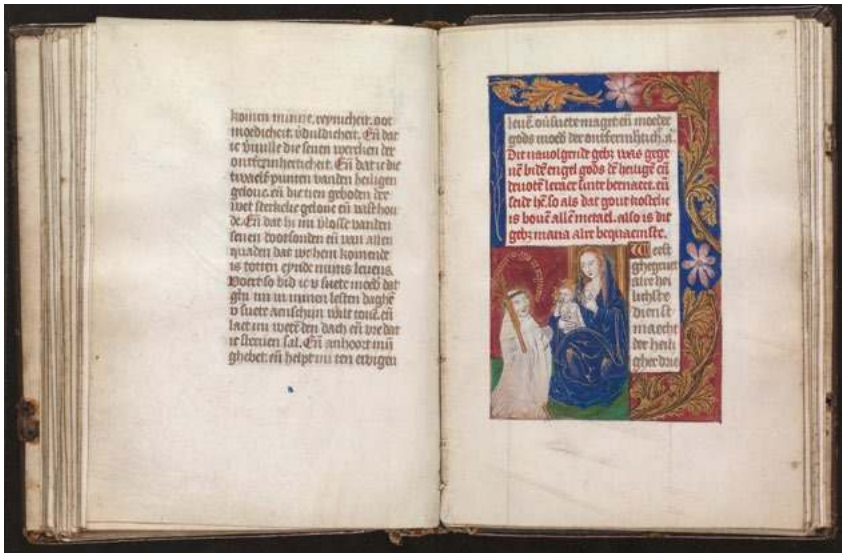 komen minne, reynicheit, oot
moedicheit, vduldicheit. En̄ dat
ic vvulle die seuen wercken der
ontfermherticheit. En̄ dat ic die
twaelf punten vanden heiligen
gelove, en̄ die tien geboden der
wet sterckelic gelove en̄ vast hou
de. En̄ dat hi mi vlosse vanden
seuen dootsonden en̄ van allen
quaden dat we hem komende
is totten eynde mijns levens.
Voert so bid ic v suete moed̄ dat
ghi mi in minen lesten daghē
v suete aenschijn wilt tonē. en̄
laet mi wetē den dach en̄ vre dat
ic sterven sal. En̄ anhoort mijn
ghebet: en̄ helpt mi ten ewigen
levē. o suete maget en̄ moeder
gods moed̄ der ontfermhtich. a.
Dit navolgende gebz was gege
nē bidē engel gods dē heiligē en̄
devotē leraer sinte bernaert. en̄
seide hē so als dat gout kostelic
is bovē allē metael. also is dit
gebz maria alre bequaemste.
Weest
ghegruet
alre hei
lichste
dienst
maecht
der heili
gher drie